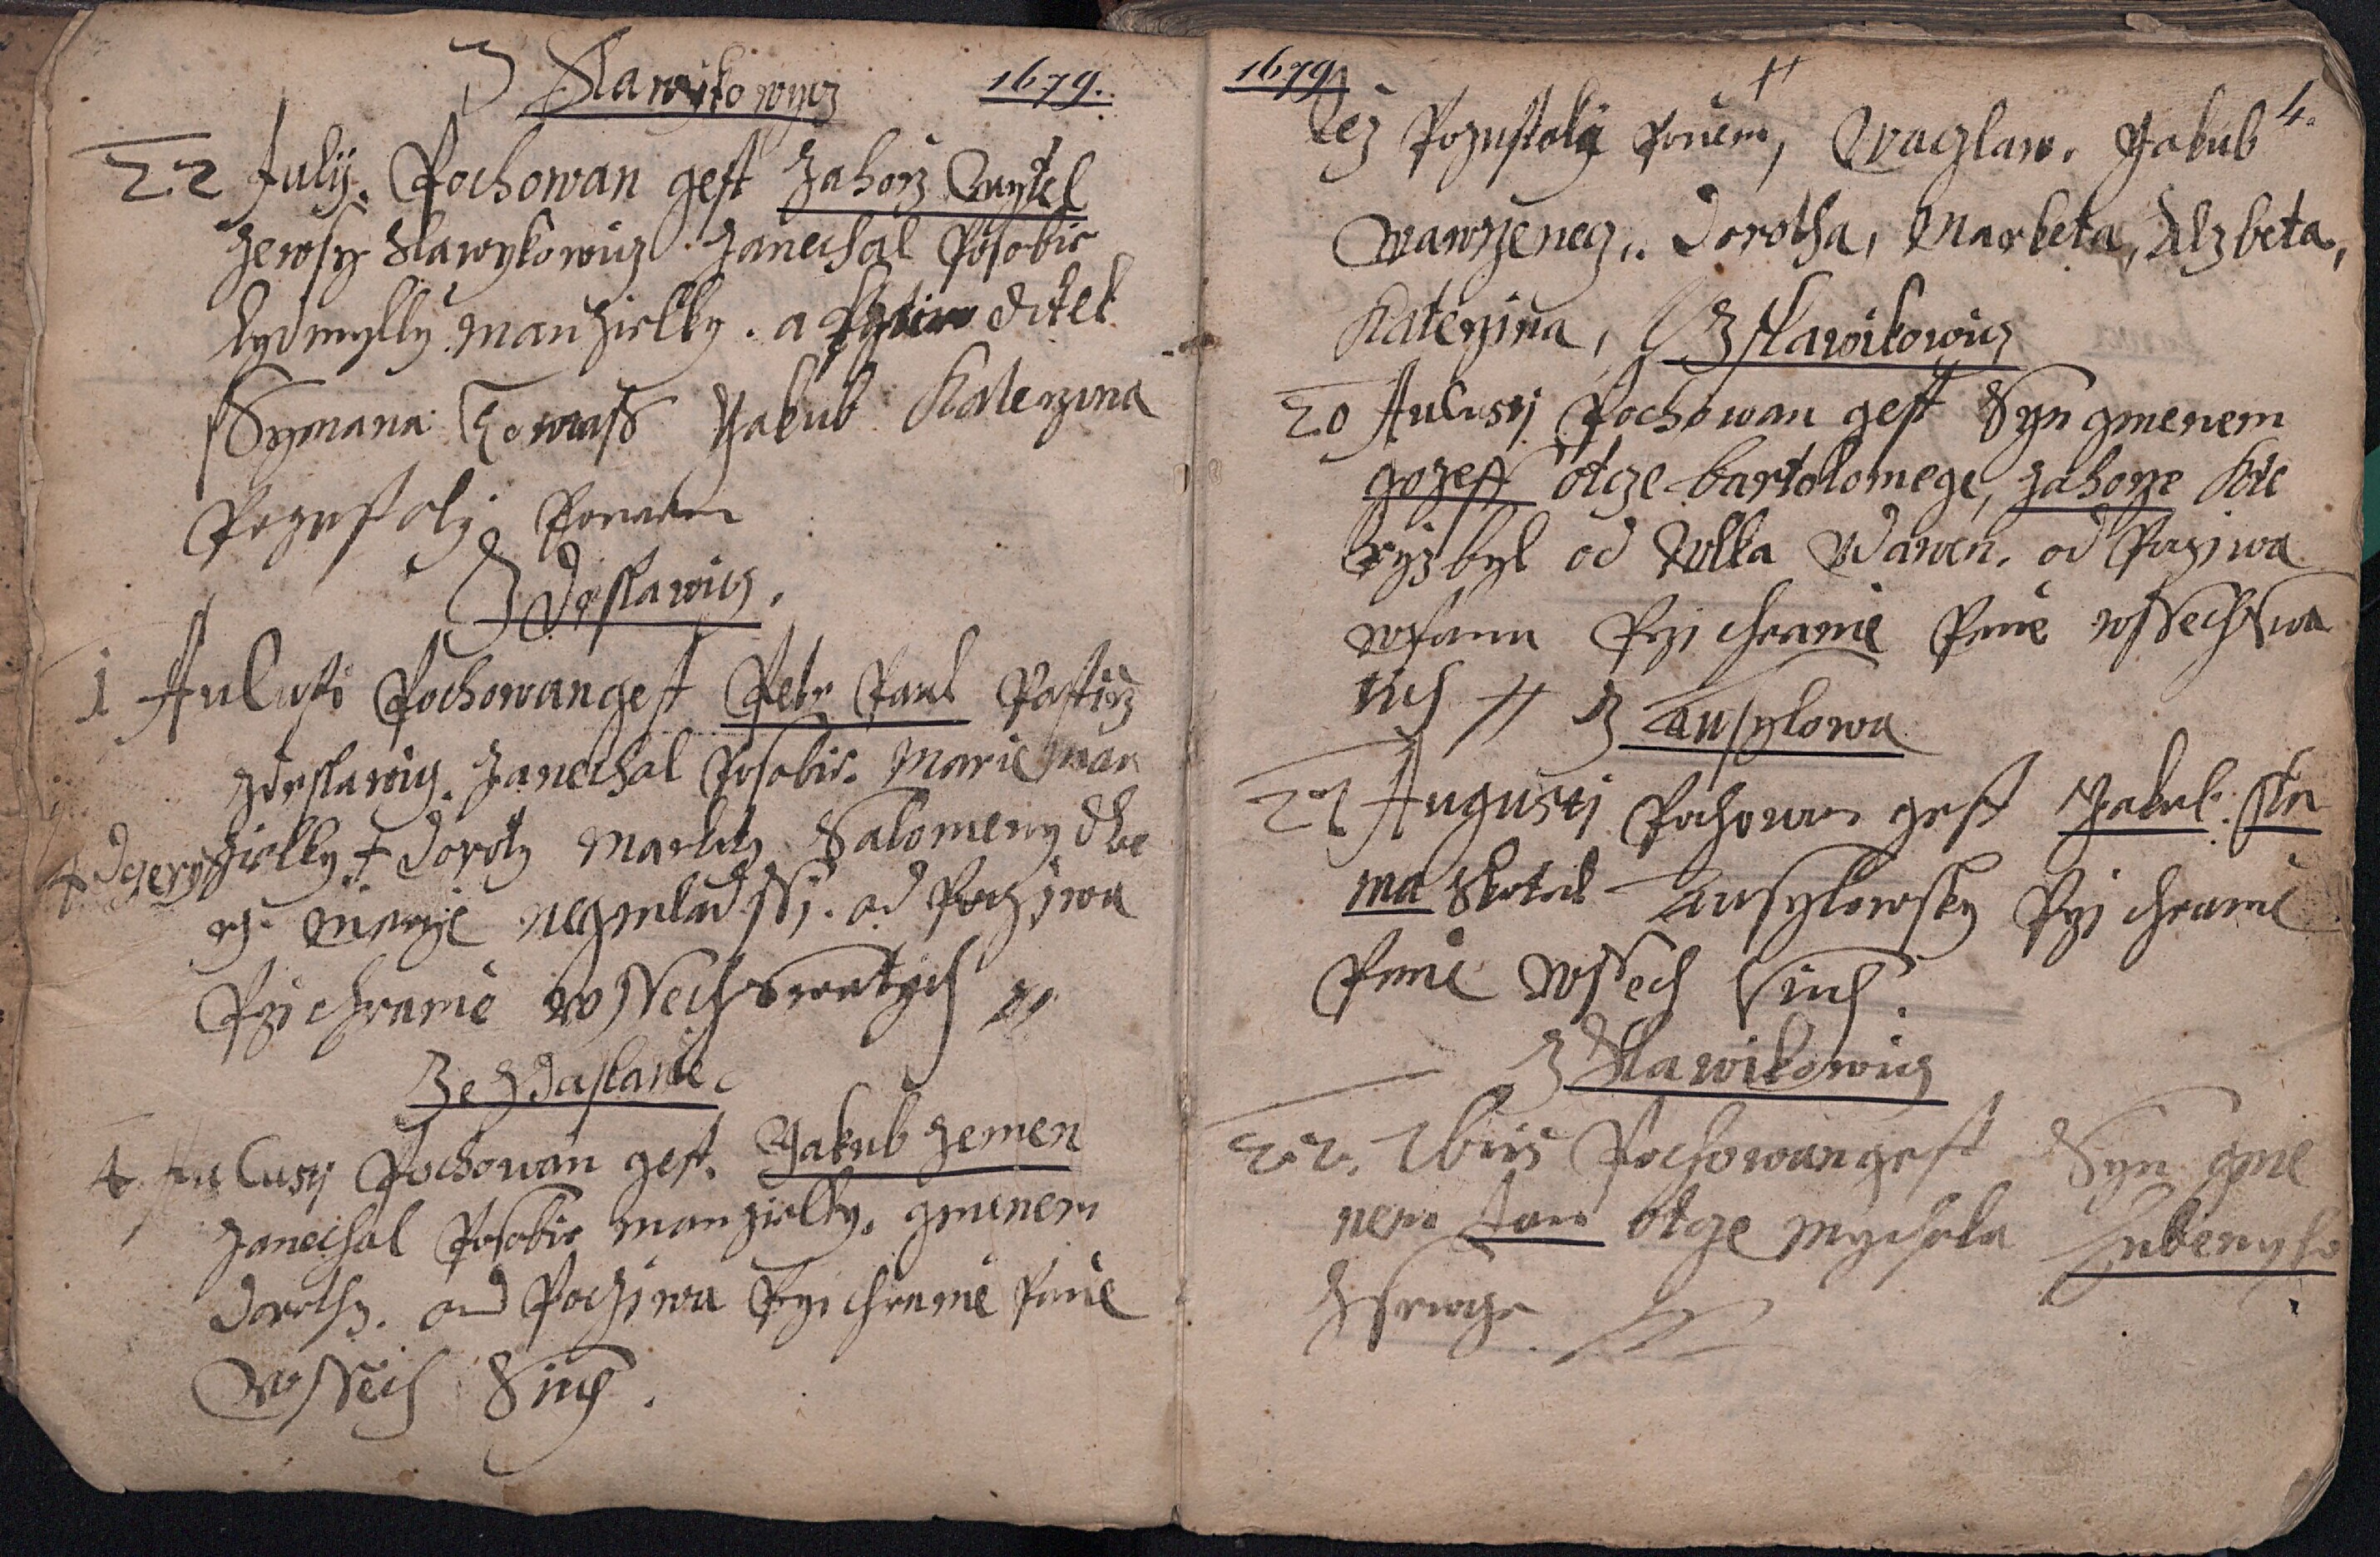 Z Slawikowycz 1679.
22 Julij. Pochowan gest Zahorz Wytel
zewsy Slawykowicz Zanechal Posobie
Lydmylly Manzielky. a ditek
Symana Tomass Jakub Katerzina
Pozustaly Ponem
Z Drslawicz.
1 Augusti Pochowangest Petr Paul Pastirz
zdrslawicz. Zanechal Posobie. Marie Man
zielky + Doroty Markity Salomeny dke
+ dczery
rz. Marzie negmladssi. od Poczjwa
Przi chramie wssech Swatych
Ze Zdaslawie
4 Augusti Pochowan gest. Jakub Zemen
Zanechal Posobie manzielky. gmenem
Dorothy. od Poczjwa Przi chramie Panie
Wssech Sich.
1679 4.
Tez Pozustaly Ponem, Waczlaw. Jakub
Wawrzenecz.. Dorotha, Marketa, Alzbeta,
Katerzina, Z Slawikowicz
20 Augusti Pochowan gest Syn gmenem
Gozeff otcze bartolomege, Zahorze kte
ryz byl od Wlka Udawen. od Poczjwa
Przi chramie Panie wssech Swa
tich Z Tausylowa
27 Augusti Pochowan gest Jakub.
ma Skotak Tausylowsky Przi chramie
Panie wssech Sich.
Z Slawikowicz
22. 7bris Pochowangest Syn gme
nem Jana otcze Mychala